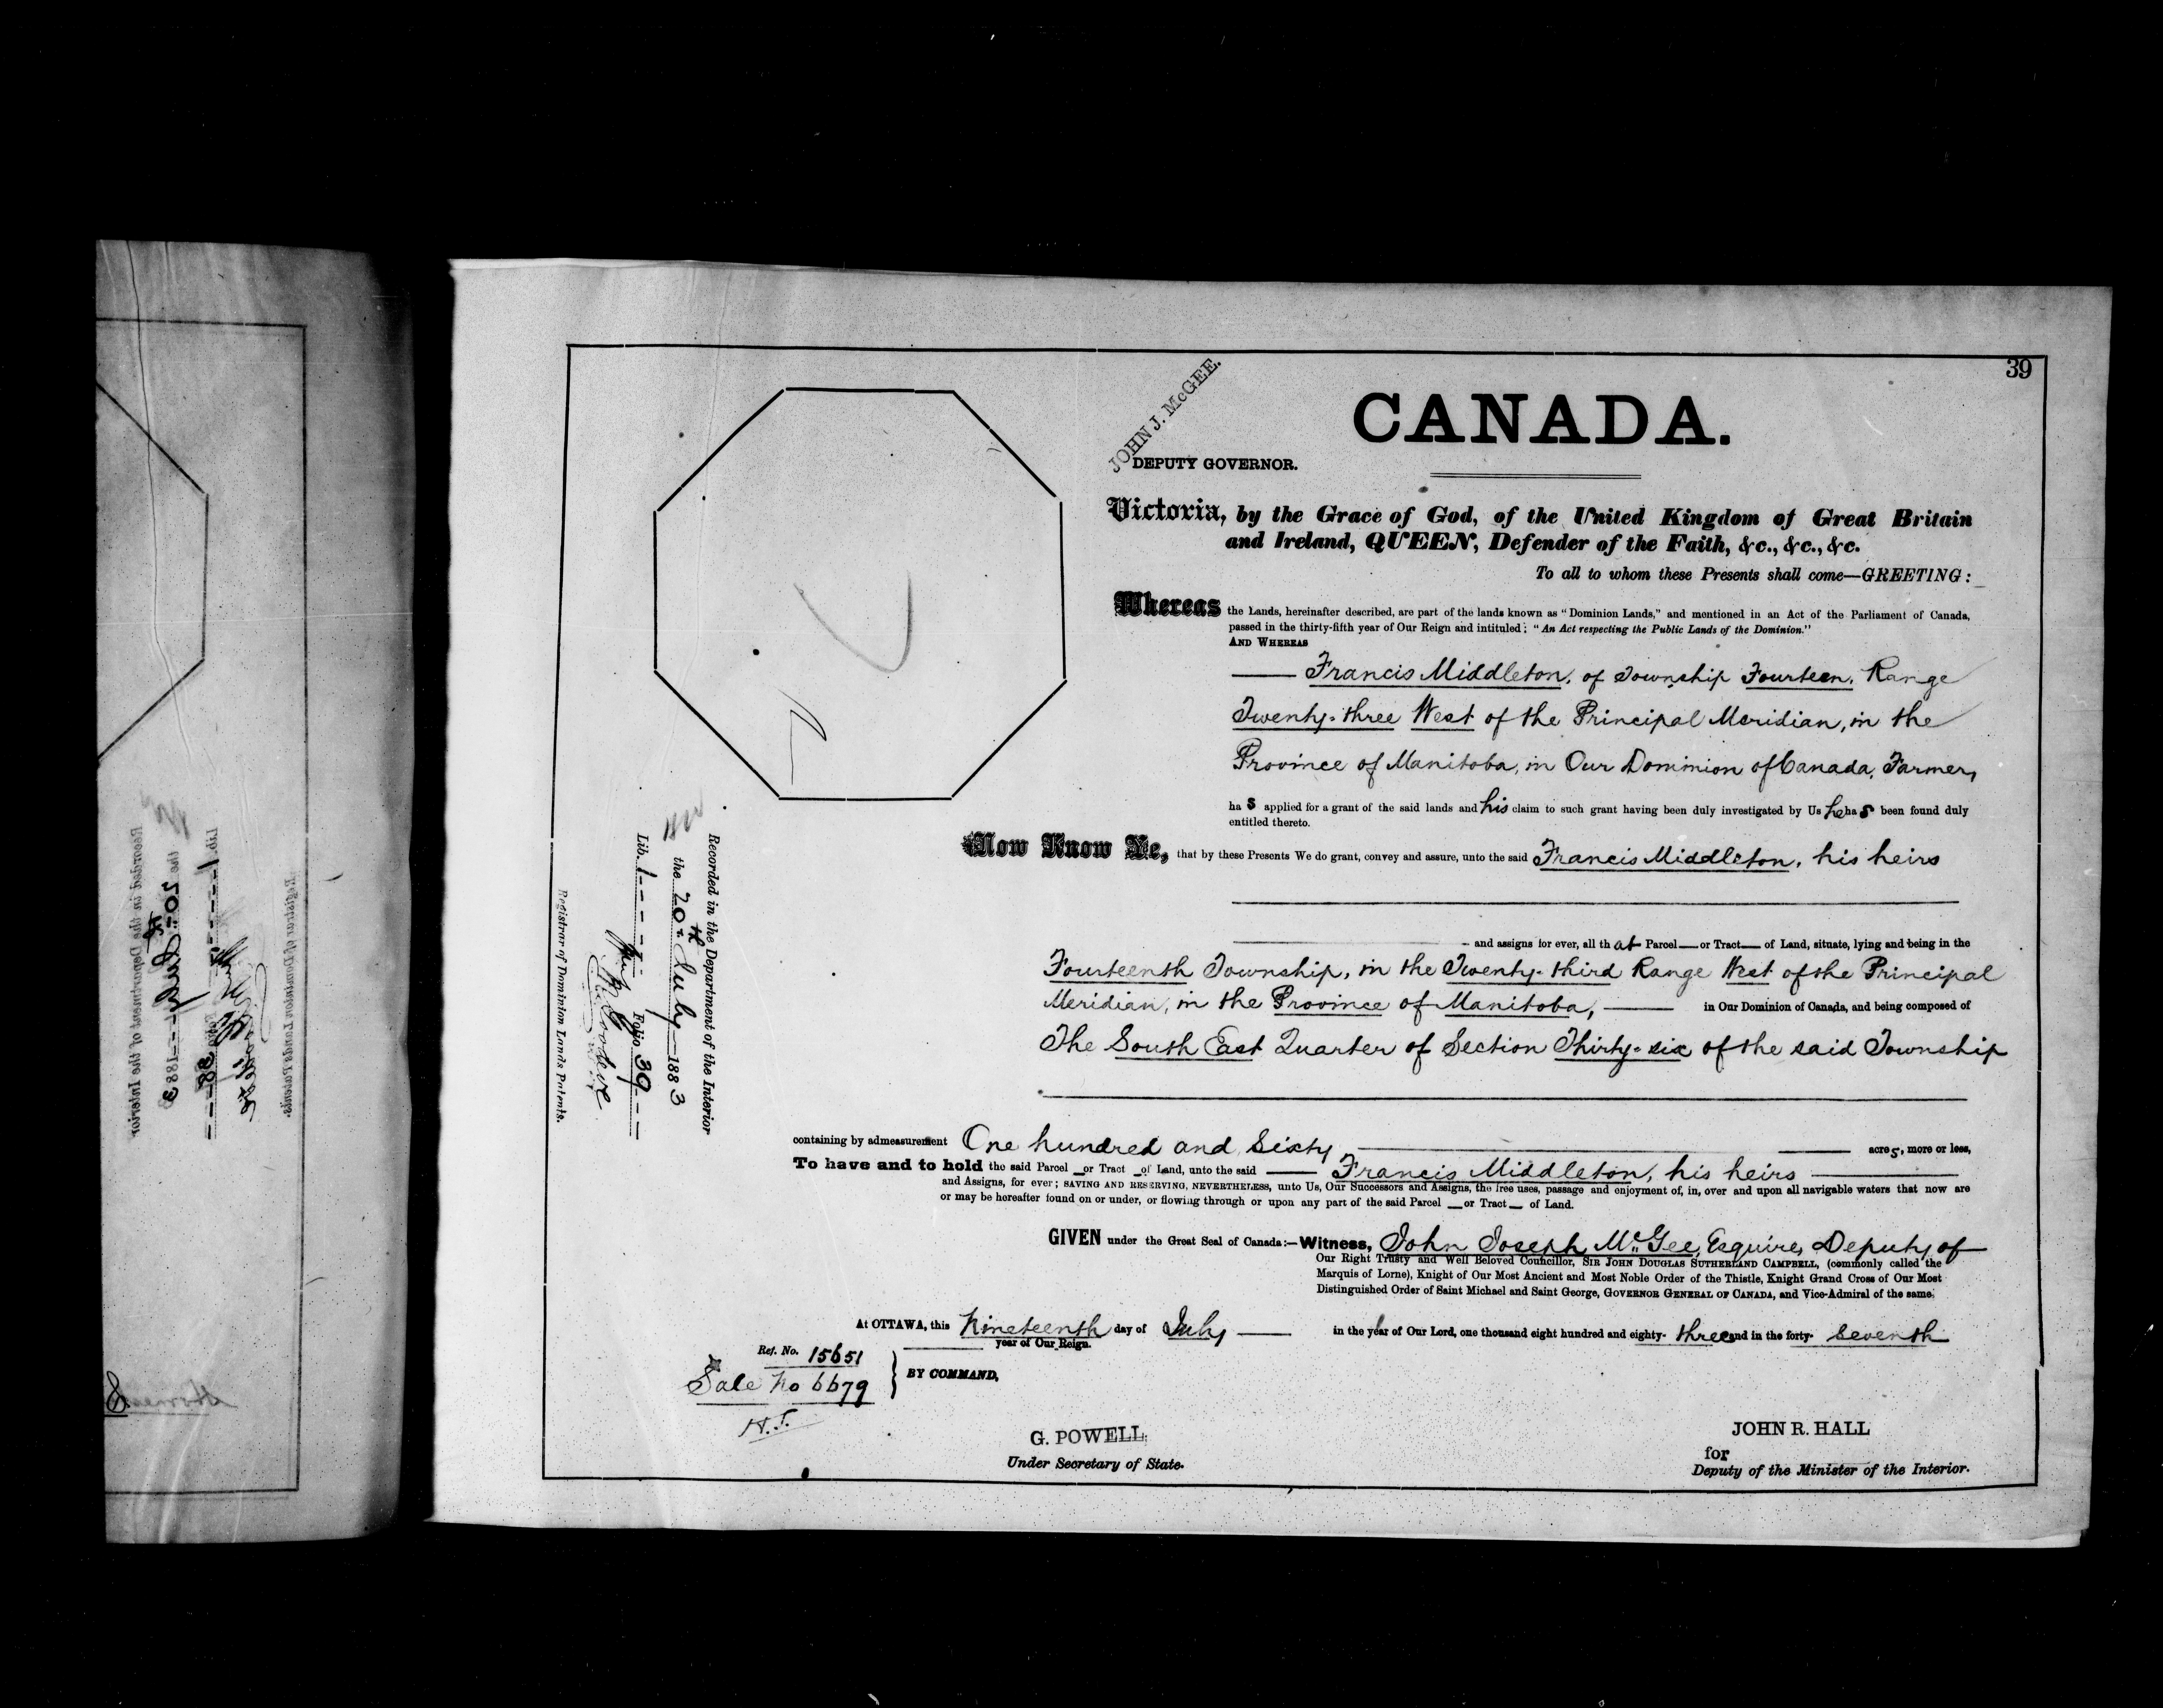 39
CANADA.
JOHN J. McGEE.
DEPUTY GOVERNOR.
Victoria, by the Grace of God, of the United Kingdom of Great Britain
and Ireland, QUEEN, Defender of the Faith, &c., &c., &c.
To all to whom these Presents shall come—GREETING:
Whereas the Lands, hereinafter described, are part of the lands known as "Dominion Lands," and mentioned in an Act of the Parliament of Canada,
passed in the thirty-fifth year of Our Reign and intituled; "An Act respecting the Public Lands of the Dominion."
AND WHEREAS
Francis Middleton, of Township Fourteen, Range
Twenty-three West of the Principal Meridian, in the
Province of Manitoba, in Our Dominion of Canada, Farmer,
ha s applied for a grant of the said lands and his claim to such grant having been duly investigated by Us he has been found duly
entitled thereto.
Now Know Ye, that by these Presents We do grant, convey and assure, unto the said Francis Middleton, his heirs
and assigns for ever, all that Parcel — or Tract — of Land, situate, lying and being in the
Fourteenth Township, in the Twenty-third Range West of the Principal
Meridian, in the Province of Manitoba, — in Our Dominion of Canada, and being composed of
The South East Quarter of Section Thirty-six of the said Township
containing by admeasurement One hundred and Sixty — acres, more or less,
To have and to hold the said Parcel — or Tract — of Land, unto the said — Francis Middleton, his heirs —
and Assigns, for ever; SAVING AND RESERVING, NEVERTHELESS, unto Us, Our Successors and Assigns, the free uses, passage and enjoyment of, in, over and upon all navigable waters that now are
or may be hereafter found on or under, or flowing through or upon any part of the said Parcel — or Tract — of Land.
GIVEN under the Great Seal of Canada:—Witness, John Joseph McGee, Esquire, Deputy of
Our Right Trusty and Well Beloved Councillor, SIR JOHN DOUGLAS SUTHERLAND CAMPBELL, (commonly called the
Marquis of Lorne), Knight of Our Most Ancient and Most Noble Order of the Thistle, Knight Grand Cross of Our Most
Distinguished Order of Saint Michael and Saint George, GOVERNOR GENERAL OF CANADA, and Vice-Admiral of the same.
At OTTAWA, this Nineteenth day of July — in the year of Our Lord, one thousand eight hundred and eighty-three and in the forty-seventh
year of Our Reign.
Ref. No. 15651
Sale No 6679
H.T.
BY COMMAND,
G. POWELL.
Under Secretary of State.
JOHN R. HALL
for
Deputy of the Minister of the Interior.
Recorded in the Department of the Interior
the 20th July — 1883
Lib. 1 Folio 39
Registrar of Dominion Lands Patents.
Recorded in the Department of the Interior
the 20th July — 1883
Lib. 1 38
Registrar of Dominion Lands Patents.